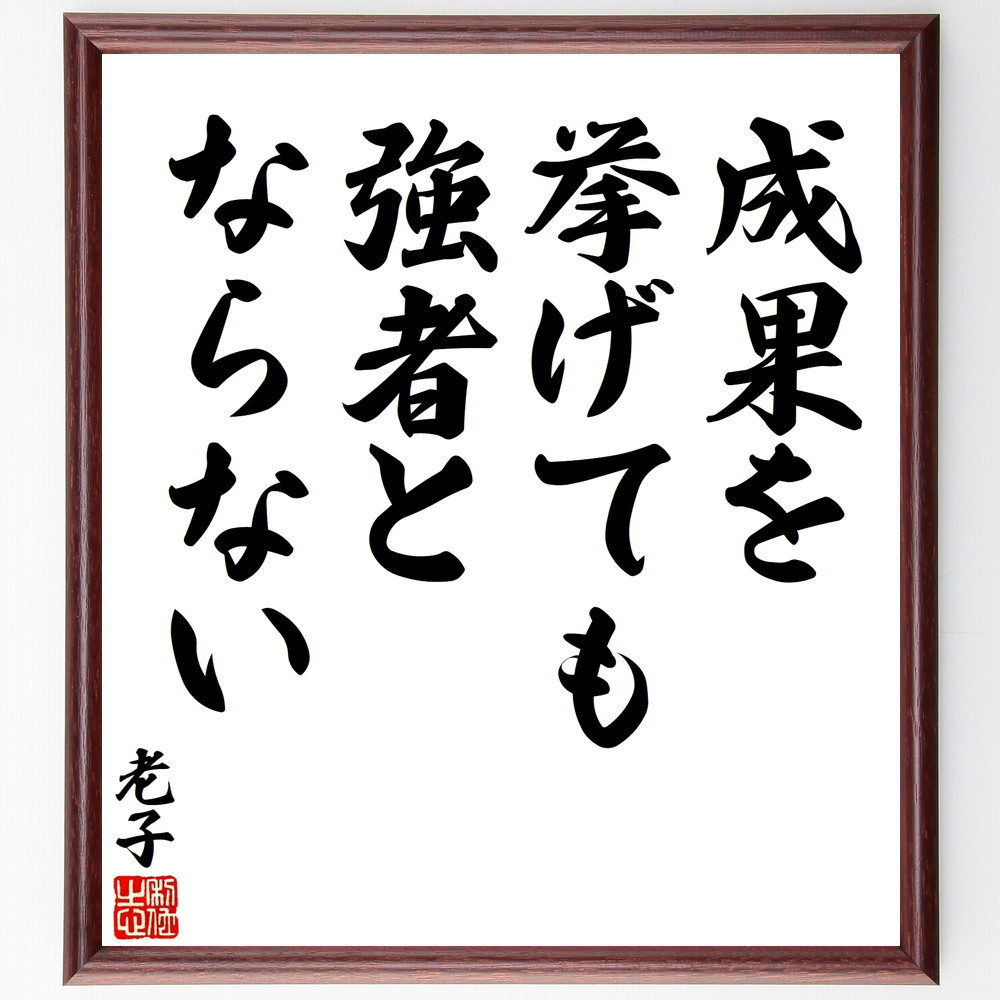 成果を
挙げても
強者と
ならない
老子